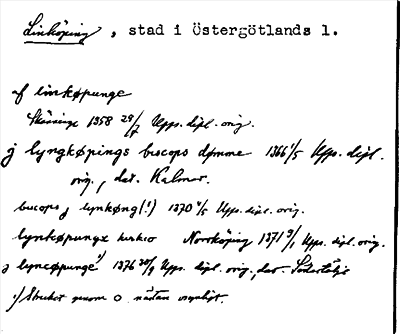 Linköping, stad i Östergötlands l.
af linkøpunge
Skänninge 1358 29/7 Upps. dipl. orig.
j lyngkøpings bucops dømme 1366 1/5 Upps. dipl.
orig., dat. Kalmar.
bucops j lynkøng (!) 1370 4/5 Upps. dipl. orig.
lynkøpungx kirkio Norrköping 1371 9/1 Upps. dipl. orig.
j lyncøpunge 1) 1376 20/9 Upps. dipl. orig., dat. Södertälje
1) Strecket genom o nästan osynligt.